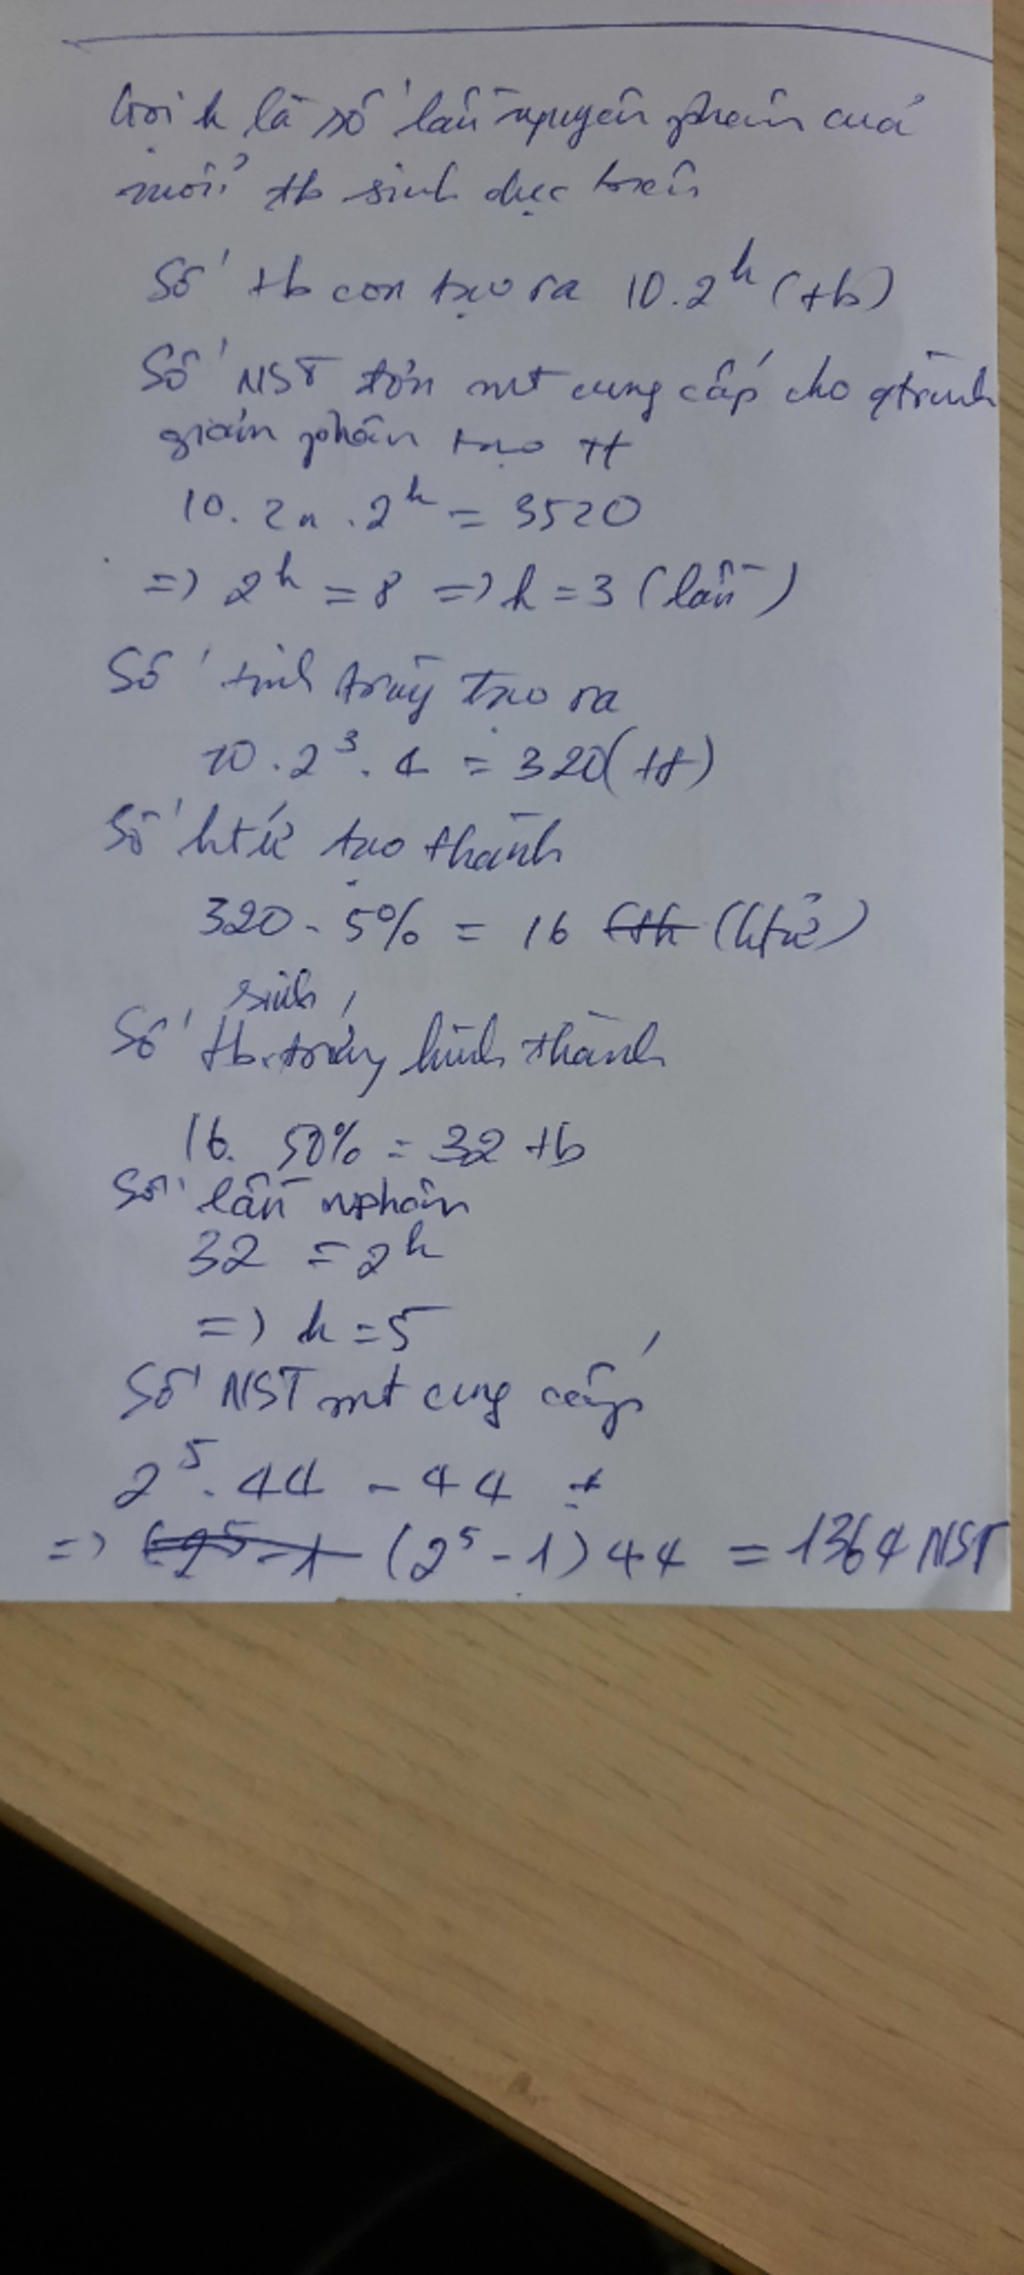 Gọi k là số lần nguyên phân của
mỗi tb sinh dục trên
Số tb con tạo ra 10.2^k (tb)
Số NST đơn mt cung cấp cho qtrình
giảm phân tạo tt
10. 2n . 2^k = 3520
=> 2^k = 8 => k = 3 (lần)
Số tinh trùng tạo ra
10 . 2^3 . 4 = 320 (tt)
Số htử tạo thành
320 . 5% = 16 (htử)
sinh
Số tb trứng hình thành
16. 50% = 32 tb
Số lần nphân
32 = 2^k
=> k = 5
Số NST mt cung cấp
2^5 . 44 - 44
=> (2^5 - 1) 44 = 1364 NST